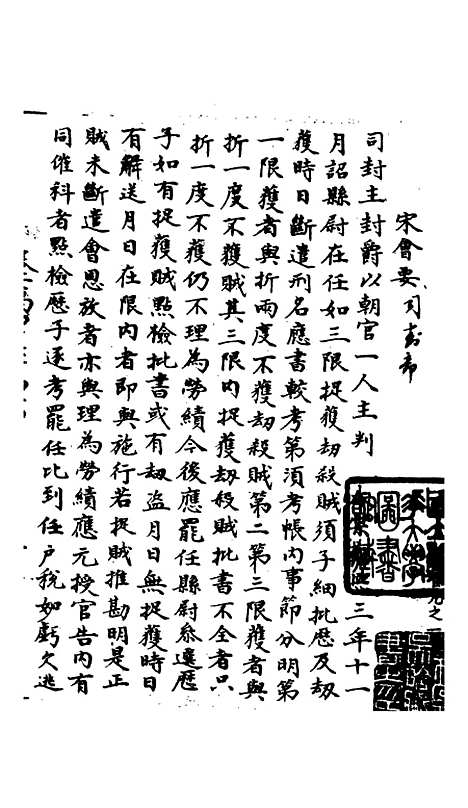 宋會要 司封部
司封主封爵以朝官一人主判
三年十一
月詔縣尉在任如三限捉獲劫殺賊須子細批歷及劫
獲時日斷遣刑名應書較考第須考帳內事節分明第
一限獲者與折兩度不獲劫殺賊第二第三限獲者與
折一度不獲賊其三限內捉獲劫殺賊批書不全者只
折一度不獲仍不理為勞績今後應罷任縣尉叅選歷
子如有捉獲賊點檢批書或有劫盜月日無捉獲時日
有解送月日在限內者即與施行若捉賊推勘明是正
賊未斷遣會恩放者亦與理為勞績應元授官告內有
同催科者點檢歷子逐考罷任比到任戶稅如虧欠逃